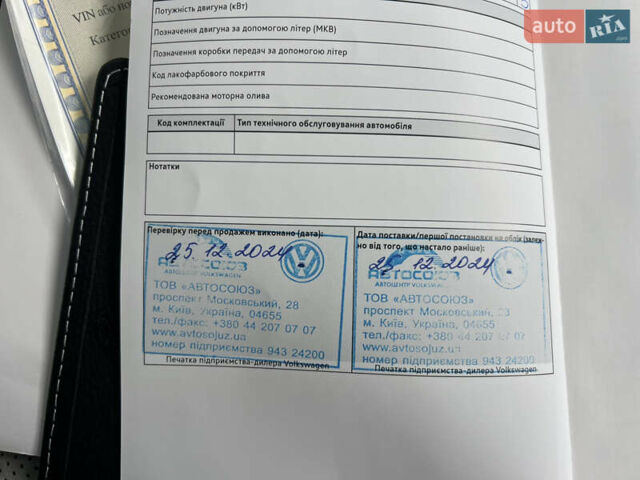 VIN або но
Категор
auto RIA
Потужність двигуна (кВт)
Позначення двигуна за допомогою літер (MKB)
Позначення коробки передач за допомогою літер
Код лакофарбового покриття
Рекомендована моторна олива
Код комплектації Тип технічного обслуговування автомобіля
Нотатки
Перевірку перед продажем виконано (дата):
25.12.2024
АВТОСОЮЗ
АВТОЦЕНТР VOLKSWAGEN
ТОВ «АВТОСОЮЗ»
проспект Московський, 28
м. Київ, Україна, 04655
тел./факс: +380 44 207 07 07
www.avtosojuz.ua
номер підприємства 943 24200
Печатка підприємства-дилера Volkswagen
Дата поставки/першої постановки на облік (залеж-
но від того, що настало раніше):
25.12.2024
АВТОСОЮЗ
АВТОЦЕНТР VOLKSWAGEN
ТОВ «АВТОСОЮЗ»
проспект Московський, 23
м. Київ, Україна, 04655
тел./факс: +380 44 207 07 07
www.avtosojuz.ua
номер підприємства 943 24200
Печатка підприємства-дилера Volkswagen